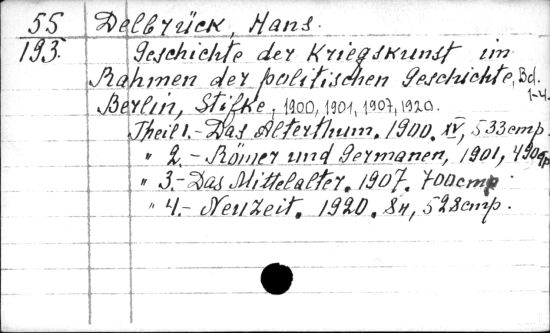 55 Delbrück, Hans.
193. Geschichte der Kriegskunst im
Rahmen der politischen Geschichte, Bd. 1-4.
Berlin, Stifke, 1900, 1901, 1907, 1920.
Theil 1.- Das Alterthum. 1900. XV, 533 стр.
" 2.- Römer und Germanen, 1901, 490 стр.
" 3.- Das Mittelalter. 1907. 700 стр.
" 4.- Neuzeit. 1920. 8н, 528 стр.